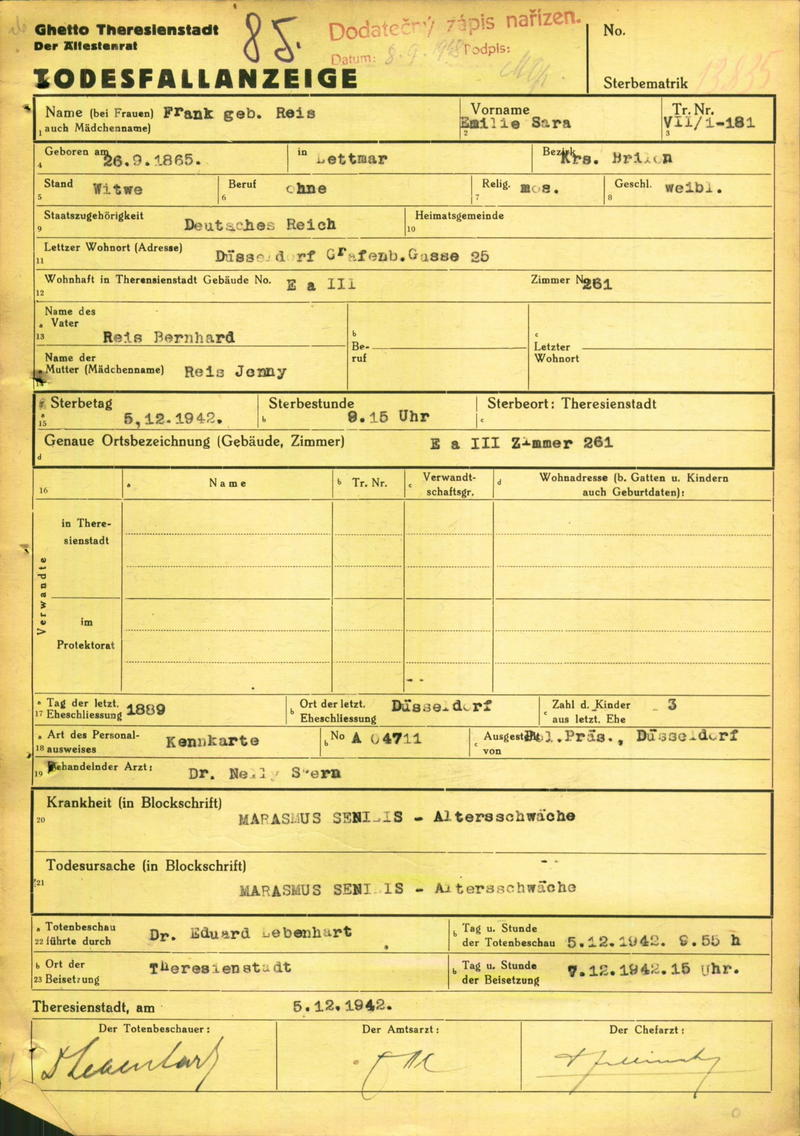 Ghetto Theresienstadt
Der Ältestenrat
85.
Dodatečný zápis nařízen.
Datum: 8.9. Podpis:
No.
TODESFALLANZEIGE
Sterbematrik
Name (bei Frauen) Frank geb. Reis Vorname Tr. Nr.
1 auch Mädchenname) 2 Emilie Sara 3 VII/1-181
4 Geboren am 26.9.1865. in Lettmar Bezirk Krs.
5 Stand Witwe 6 Beruf ohne 7 Relig. mos. 8 Geschl. weibl.
9 Staatszugehörigkeit Deutsches Reich 10 Heimatsgemeinde
11 Lettzer Wohnort (Adresse) Düsseldorf Grafenb.Gasse 25
12 Wohnhaft in Therensienstadt Gebäude No. E a III Zimmer N 261
Name des
a Vater
13 Reis Bernhard
b Beruf
c Letzter Wohnort
Name der
Mutter (Mädchenname) Reis Jenny
a 15 Sterbetag 5,12.1942. b Sterbestunde 9.15 Uhr c Sterbeort: Theresienstadt
d Genaue Ortsbezeichnung (Gebäude, Zimmer) E a III Zimmer 261
16 a Name b Tr. Nr. c Verwandt-schaftsgr. d Wohnadresse (b. Gatten u. Kindern auch Geburtdaten):
Verwandte
in There-
sienstadt
im
Protektorat
- -
a Tag der letzt. b Ort der letzt. Düsseldorf c Zahl d. Kinder 3
17 Eheschliessung 1889 Eheschliessung aus letzt. Ehe
a Art des Personal- b No A 04711 c Ausgest. Pol.Präs., Düsseldorf
18 ausweises Kennkarte von
19 Behandelnder Arzt: Dr. Nelly Stern
Krankheit (in Blockschrift)
20 MARASMUS SENILIS - Altersschwäche
Todesursache (in Blockschrift) - -
21 MARASMUS SENILIS - Altersschwäche
a Totenbeschau Dr. Eduard Lebenhart b Tag u. Stunde
22 führte durch der Totenbeschau 5.12.1942. 9.55 h
b Ort der Theresienstadt b Tag u. Stunde
23 Beisetzung der Beisetzung 7.12.1942.15 Uhr.
Theresienstadt, am 5.12.1942.
Der Totenbeschauer: Der Amtsarzt: Der Chefarzt: